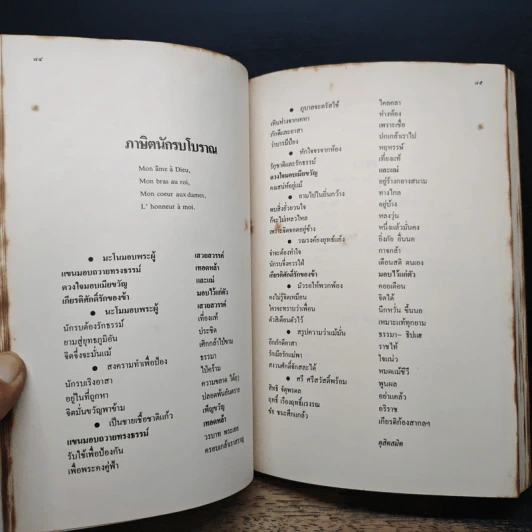 ๘๔
ภาษิตนักรบโบราณ
Mon âme à Dieu,
Mon bras au roi,
Mon coeur aux dames,
L' honneur à moi.
● มะโนมอบพระผู้ เสวยสวรรค์
แขนมอบถวายทรงธรรม์ เทอดหล้า
ดวงใจมอบเมียขวัญ และแม่
เกียรติศักดิ์รักของข้า มอบไว้แก่ตัว
● มะโนมอบพระผู้ เสวยสวรรค์
นักรบต้องรักธรรม์ เที่ยงแท้
ยามสู่ยุทธภูมิอัน ประชิด
จิตจึ่งจะมั่นแม้ เศิกกล้าไป่ขาม
● สงครามทำเพื่อป้อง ธรรมา
นักรบเริงอาสา ไป่คร้าม
อยู่ในที่ถูกหา ความขลาด ได้ฤา
จิตมั่นขวัญพาข้าม ปลอดพ้นอันตราย
● เป็นชายเชื้อชาติแก้ว เพ็ญขวัญ
แขนมอบถวายทรงธรรม์ เทอดหล้า
รับใช้เพื่อป้องกัน วรบาท พระเอย
เพื่อพระคงคู่ฟ้า
๘๕
● ภูบาลจะตรัสใช้ ไคลคลา
เดินห่างจากเคหา ห่างห้อง
ภักดีและอาสา เพราะเชื่อ
ว่าบารมีป้อง ปกเกล้าเราไป
● หักใจจรจากห้อง หฤหรรษ์
รักชาติและรักธรรม์ เที่ยงแท้
ดวงใจมอบเมียขวัญ และแม่
คงเสน่ห์อยู่แม้ อยู่ร้างกลางสนาม
● ยามไปในถิ่นกว้าง ทางไกล
พบสิ่งยั่วยวนใจ อยู่บ้าง
ก็จะไม่หลงใหล หลงวุ่น
เพราะจิตจอดอยู่ข้าง หนึ่งแล้วมั่นคง
● รณรงค์ร้องยุทธ์แย้ง ยิ่งภัย อื่นนอ
จำจะต้องทำใจ กาจกล้า
นักรบจึ่งควรใฝ่ เตือนสติ ตนเอง
เกียรติศักดิ์รักของข้า มอบไว้แก่ตัว
● มัวรอให้พวกพ้อง คอยเตือน
คงไม่รู้จักเหมือน จิตได้
ใครจะทราบว่าเพื่อน นึกหวั่น ขึ้นนอ
ตัวสิเตือนตัวไว้ เหมาะแท้ทุกยาม
● สรุปความว่าแม้มั่น ธรรมา- ธิปเฮ
อีกภักดีอาสา ราชไท้
รักมิตรรักแม่พา ใจแน่ว
สงวนศักดิ์จักสละได้ หมดแม้ชีวี
● ศรี ศรีสวัสดิ์พร้อม พูนผล
สิทธิ จัตุรพล อย่าแคล้ว
ฤทธิ์ เรืองฤทธิ์แรงรณ อริราช
ชัย ชนะศึกแกล้ว เกียรติก้องสากลฯ
ดุสิตสมิต